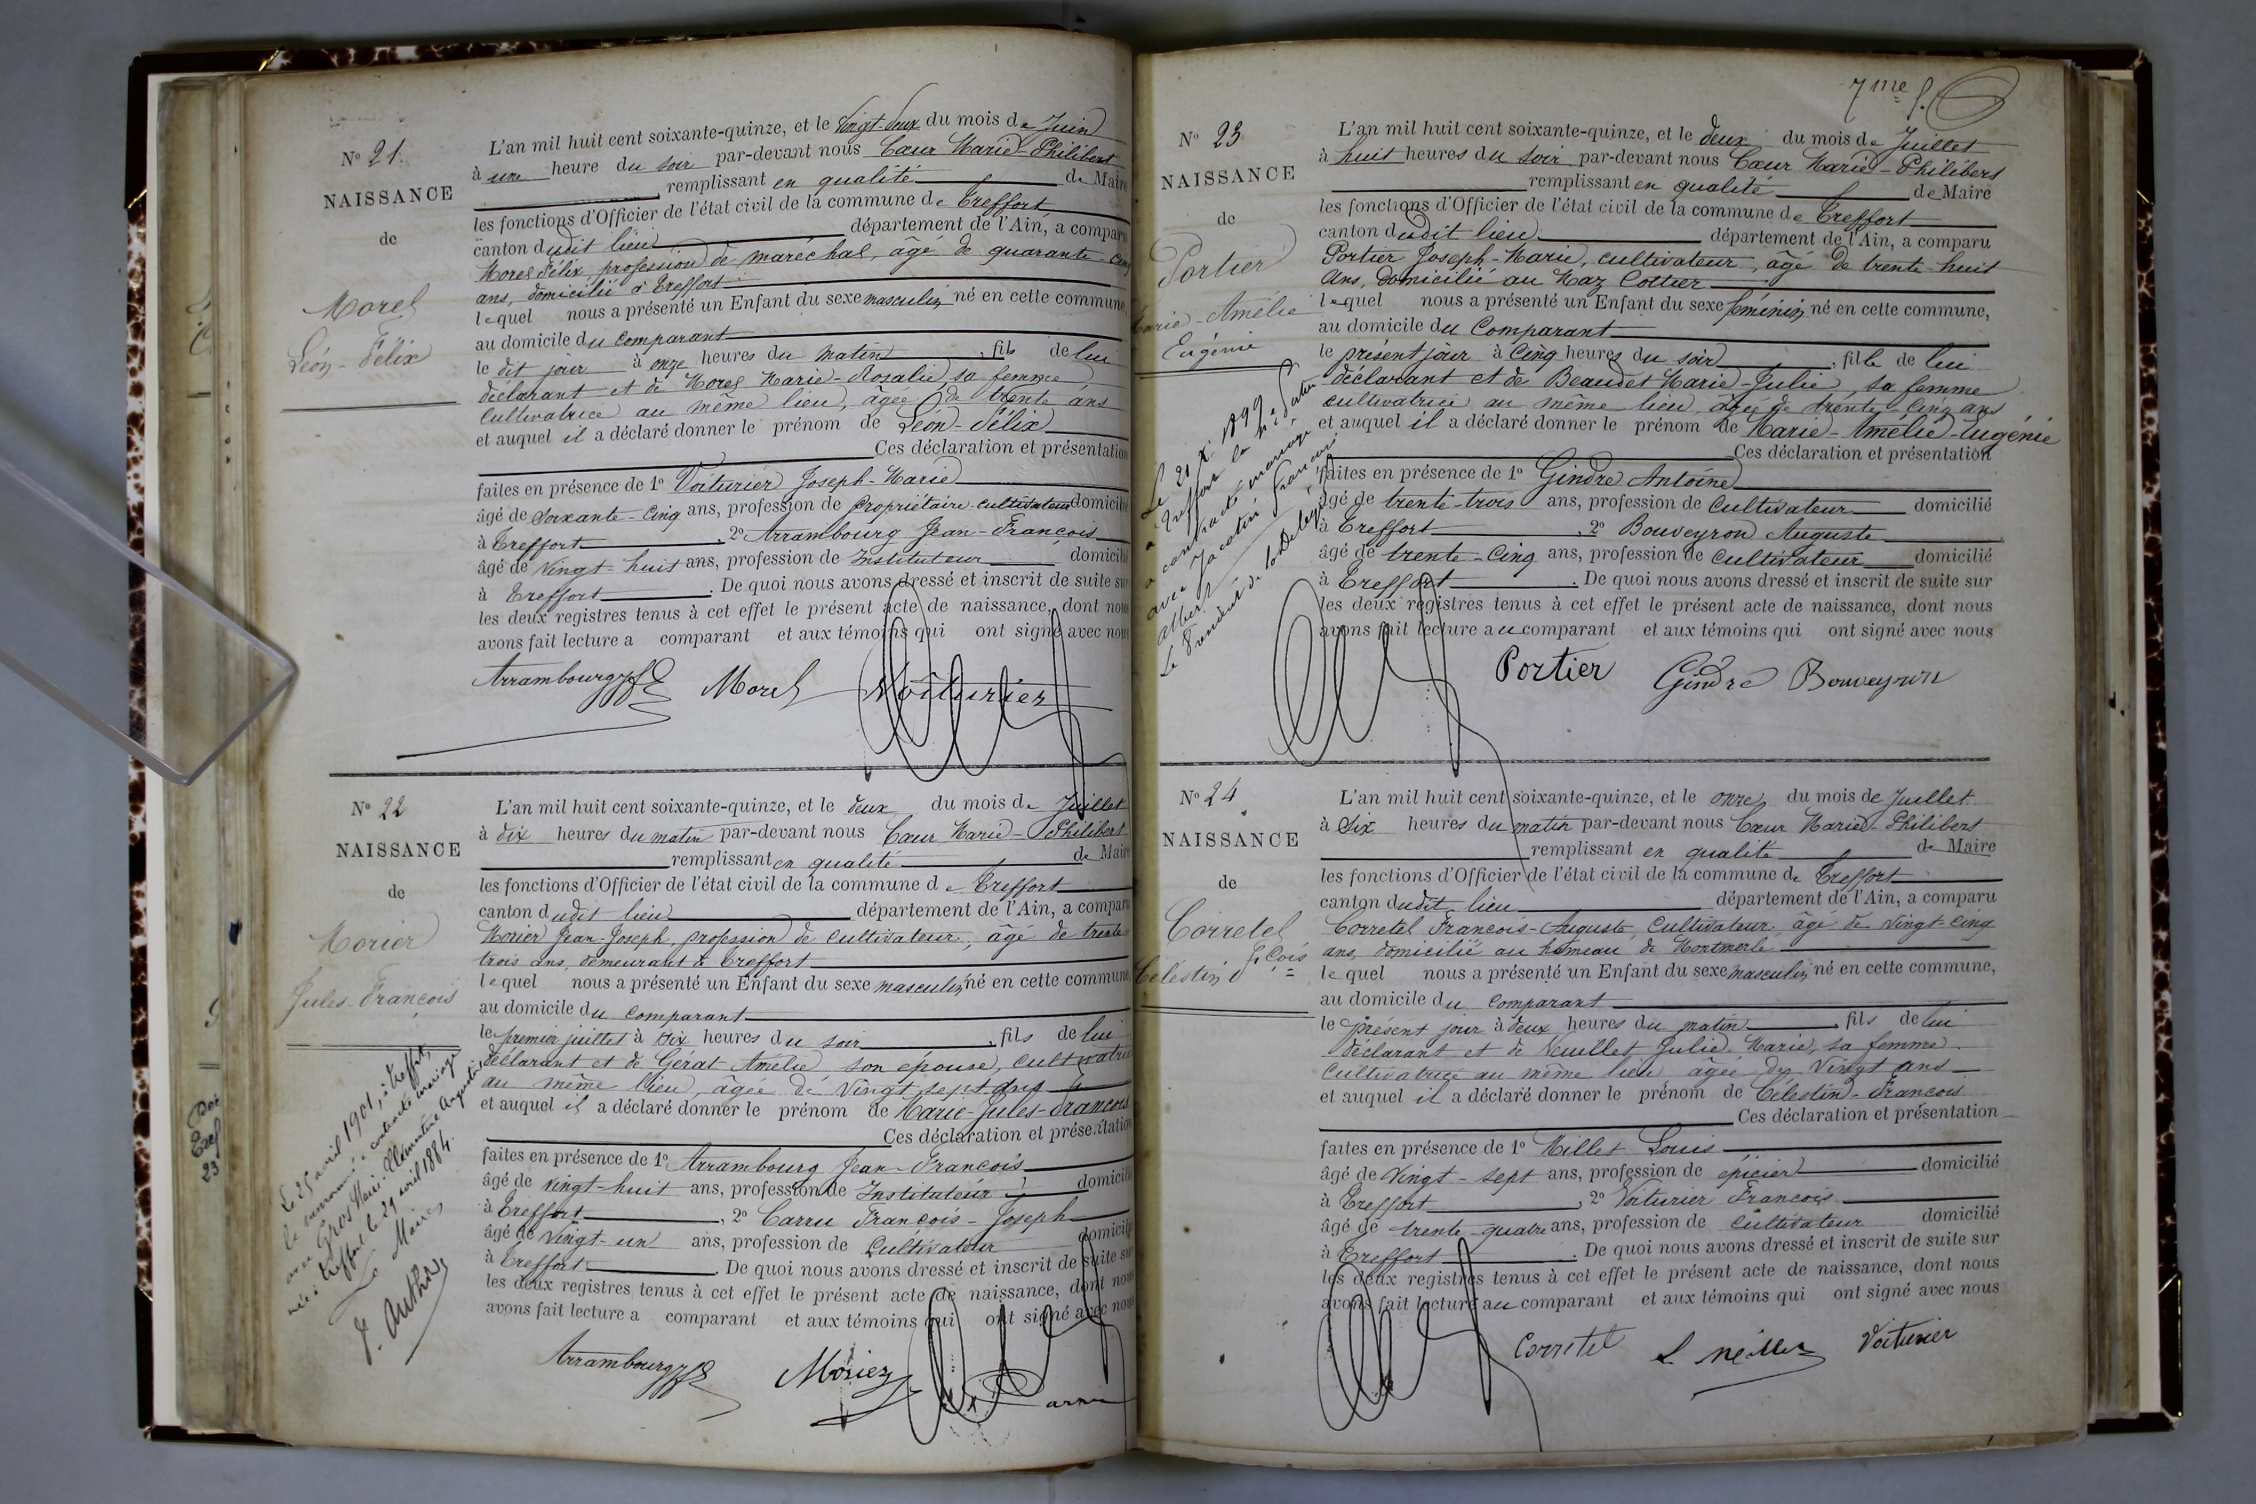 N° 21.
NAISSANCE
de
Morel
Léon-Félix
L'an mil huit cent soixante-quinze, et le vingt-deux du mois de Juin
à une heure du soir par-devant nous Cœur Marie-Philibert
remplissant en qualité de Maire
les fonctions d'Officier de l'état civil de la commune de Treffort
canton dudit lieu département de l'Ain, a comparu
Morel Félix, profession de maréchal, âgé de quarante-cinq
ans, domicilié à Treffort
lequel nous a présenté un Enfant du sexe masculin né en cette commune,
au domicile du comparant
le dit jour à onze heures du matin, fils de lui
déclarant et de Morel Marie-Rosalie, sa femme
cultivatrice au même lieu, âgée de trente ans
et auquel il a déclaré donner le prénom de Léon-Félix
Ces déclaration et présentation
faites en présence de 1° Voiturier Joseph-Marie
âgé de soixante-cinq ans, profession de propriétaire-cultivateur domicilié
à Treffort, 2° Arrambourg Jean-François
âgé de vingt-huit ans, profession de Instituteur domicilié
à Treffort. De quoi nous avons dressé et inscrit de suite sur
les deux registres tenus à cet effet le présent acte de naissance, dont nous
avons fait lecture a comparant et aux témoins qui ont signé avec nous
Arrambourg Morel Voiturier
N° 22
NAISSANCE
de
Morier
Jules-François
Le 25 avril 1901, à Treffort,
le susnommé a contracté mariage
avec Gros Marie-Clémentine Augustine
née à Treffort le 29 avril 1884.
Le Maire,
L'an mil huit cent soixante-quinze, et le deux du mois de Juillet
à dix heures du matin par-devant nous Cœur Marie-Philibert
remplissant en qualité de Maire
les fonctions d'Officier de l'état civil de la commune de Treffort
canton dudit lieu département de l'Ain, a comparu
Morier Jean-Joseph, profession de cultivateur, âgé de trente-
trois ans, demeurant à Treffort
lequel nous a présenté un Enfant du sexe masculin né en cette commune,
au domicile du comparant
le premier juillet à six heures du soir, fils de lui
déclarant et de Gérat Amélie son épouse, cultivatrice
au même lieu, âgée de vingt sept ans
et auquel il a déclaré donner le prénom de Marie-Jules-François
Ces déclaration et présentation
faites en présence de 1° Arrambourg Jean-François
âgé de vingt-huit ans, profession de Instituteur domicilié
à Treffort, 2° Carru François-Joseph
âgé de vingt-un ans, profession de Cultivateur domicilié
à Treffort. De quoi nous avons dressé et inscrit de suite sur
les deux registres tenus à cet effet le présent acte de naissance, dont nous
avons fait lecture a comparant et aux témoins qui ont signé avec nous
Arrambourg Morier
7me f.
N° 23
NAISSANCE
de
Portier
Marie-Amélie
Eugénie
a contracté mariage
avec Jacotin François
L'an mil huit cent soixante-quinze, et le deux du mois de Juillet
à huit heures du soir par-devant nous Cœur Marie-Philibert
remplissant en qualité de Maire
les fonctions d'Officier de l'état civil de la commune de Treffort
canton dudit lieu département de l'Ain, a comparu
Portier Joseph-Marie, cultivateur, âgé de trente-huit
ans, domicilié au Maz Cottier
lequel nous a présenté un Enfant du sexe féminin né en cette commune,
au domicile du comparant
le présent jour à cinq heures du soir, fille de lui
déclarant et de Beaudet Marie-Julie, sa femme
cultivatrice au même lieu, âgée de trente-cinq ans
et auquel il a déclaré donner le prénom de Marie-Amélie-Eugénie
Ces déclaration et présentation
faites en présence de 1° Gindre Antoine
âgé de trente-trois ans, profession de cultivateur domicilié
à Treffort, 2° Bouveyron Auguste
âgé de trente-cinq ans, profession de cultivateur domicilié
à Treffort. De quoi nous avons dressé et inscrit de suite sur
les deux registres tenus à cet effet le présent acte de naissance, dont nous
avons fait lecture au comparant et aux témoins qui ont signé avec nous
Portier Gindre Bouveyron
N° 24
NAISSANCE
de
Corretel
Célestin Fçois
L'an mil huit cent soixante-quinze, et le onze du mois de Juillet
à six heures du matin par-devant nous Cœur Marie-Philibert
remplissant en qualité de Maire
les fonctions d'Officier de l'état civil de la commune de Treffort
canton dudit lieu département de l'Ain, a comparu
Corretel François-Auguste cultivateur, âgé de vingt-cinq
ans, domicilié au hameau de Montmerle
lequel nous a présenté un Enfant du sexe masculin né en cette commune,
au domicile du comparant
le présent jour à deux heures du matin, fils de lui
déclarant et de Veuillet Julie-Marie, sa femme
cultivatrice au même lieu âgée de vingt ans
et auquel il a déclaré donner le prénom de Célestin-François
Ces déclaration et présentation
faites en présence de 1° Millet Louis
âgé de vingt-sept ans, profession de épicier domicilié
à Treffort, 2° Voiturier François
âgé de trente-quatre ans, profession de cultivateur domicilié
à Treffort. De quoi nous avons dressé et inscrit de suite sur
les deux registres tenus à cet effet le présent acte de naissance, dont nous
avons fait lecture au comparant et aux témoins qui ont signé avec nous
Corretel L. Millet Voiturier